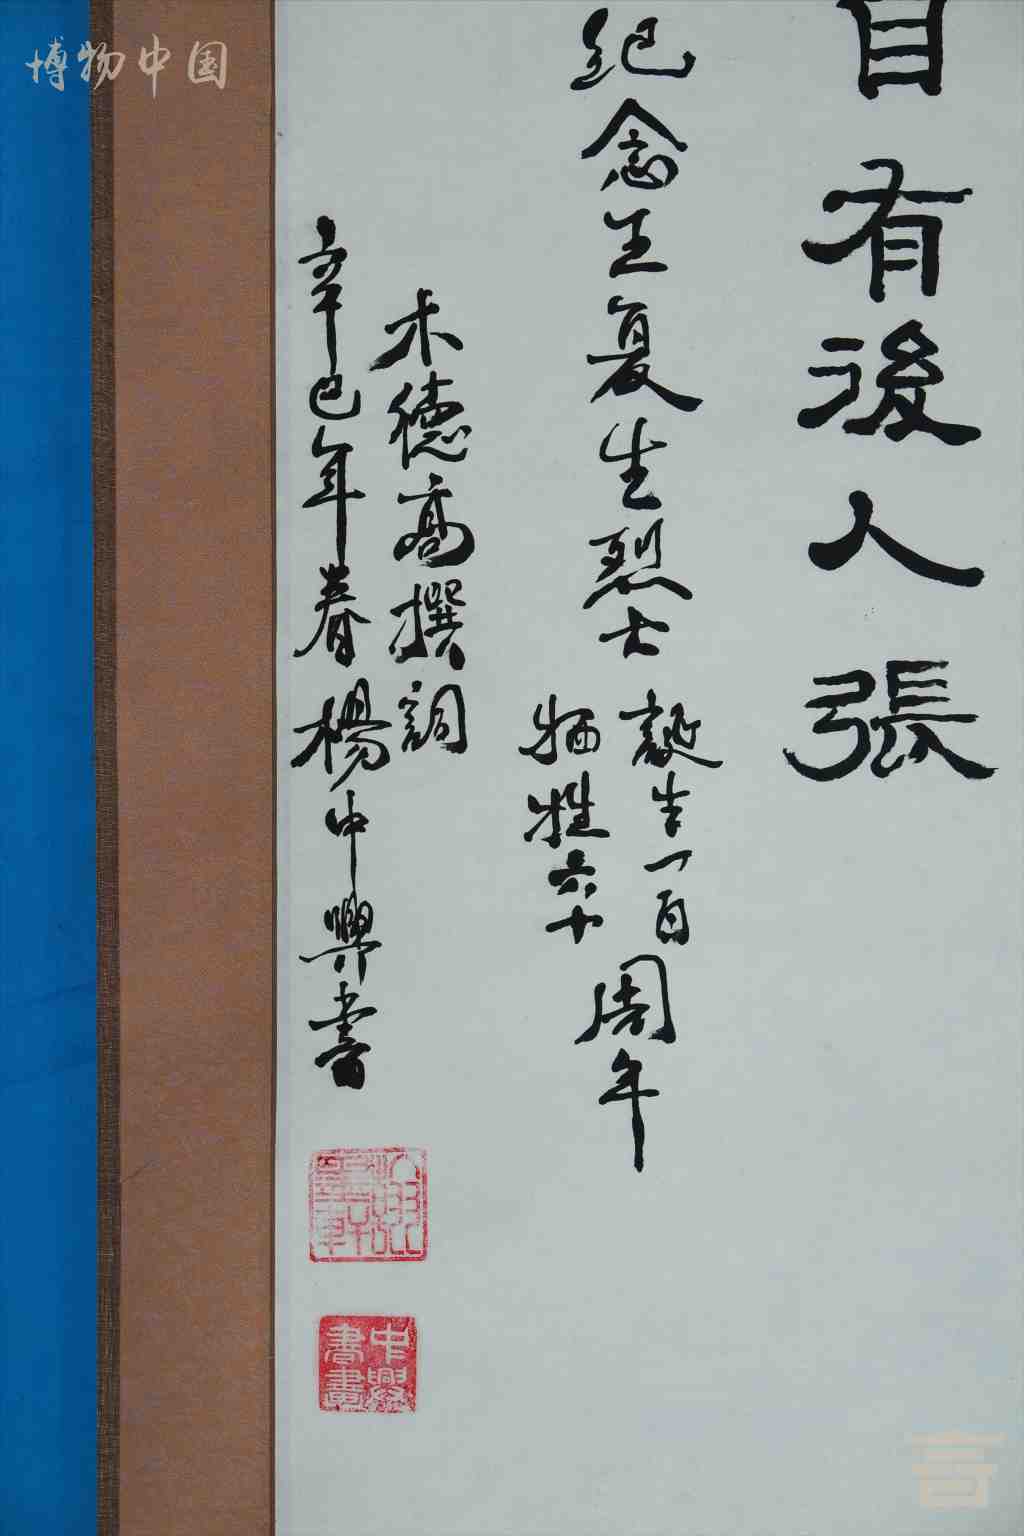 博物中国
自有後人張
紀念王复生烈士
誕生一百
牺牲六十
周年
木德高撰詞
辛巳年春楊中興書
中興書畫